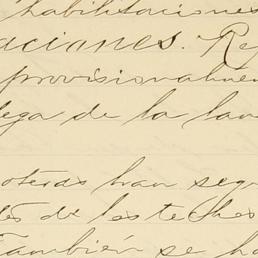 habilitaciones
aciones. Re
provisionalmen
ega de la lan
oteras han segu
tes de los techos
También se ha